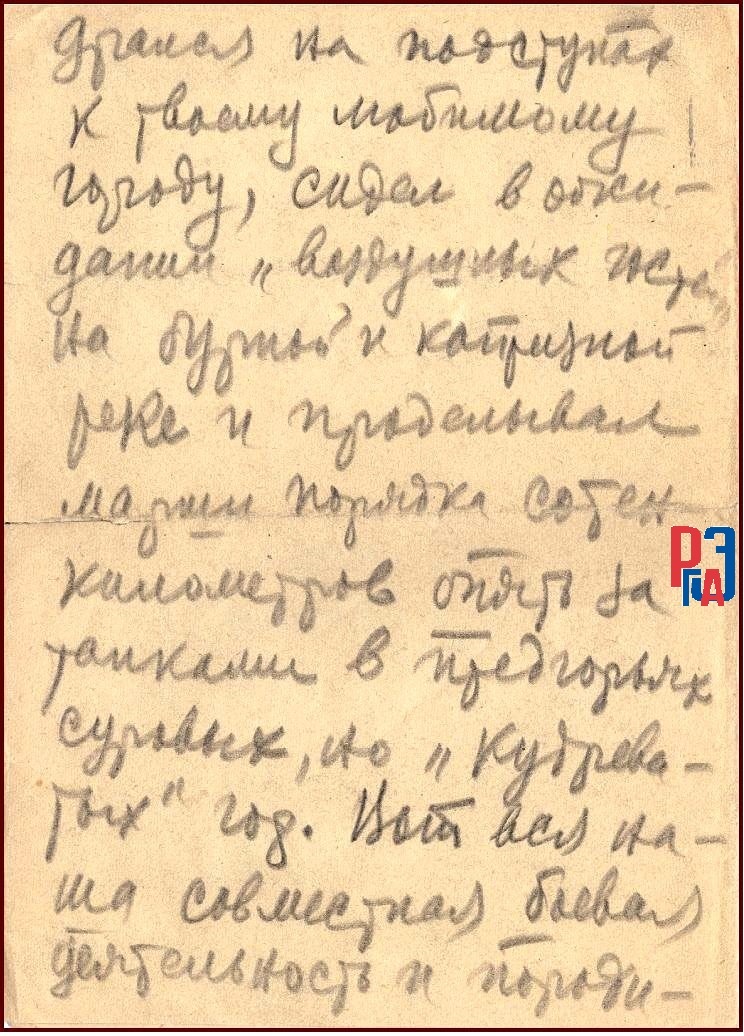 дрался на подступах
к твоему любимому
городу, сидел в ожи-
дании „воздушных гостей"
на бурной и капризной
реке и проделывал
марши порядка сотен
километров опять за
танками в предгорьях
суровых, но „кудрева-
тых" гор. Вот вся на-
ша совместная боевая
деятельность и породи-
РГАЭ